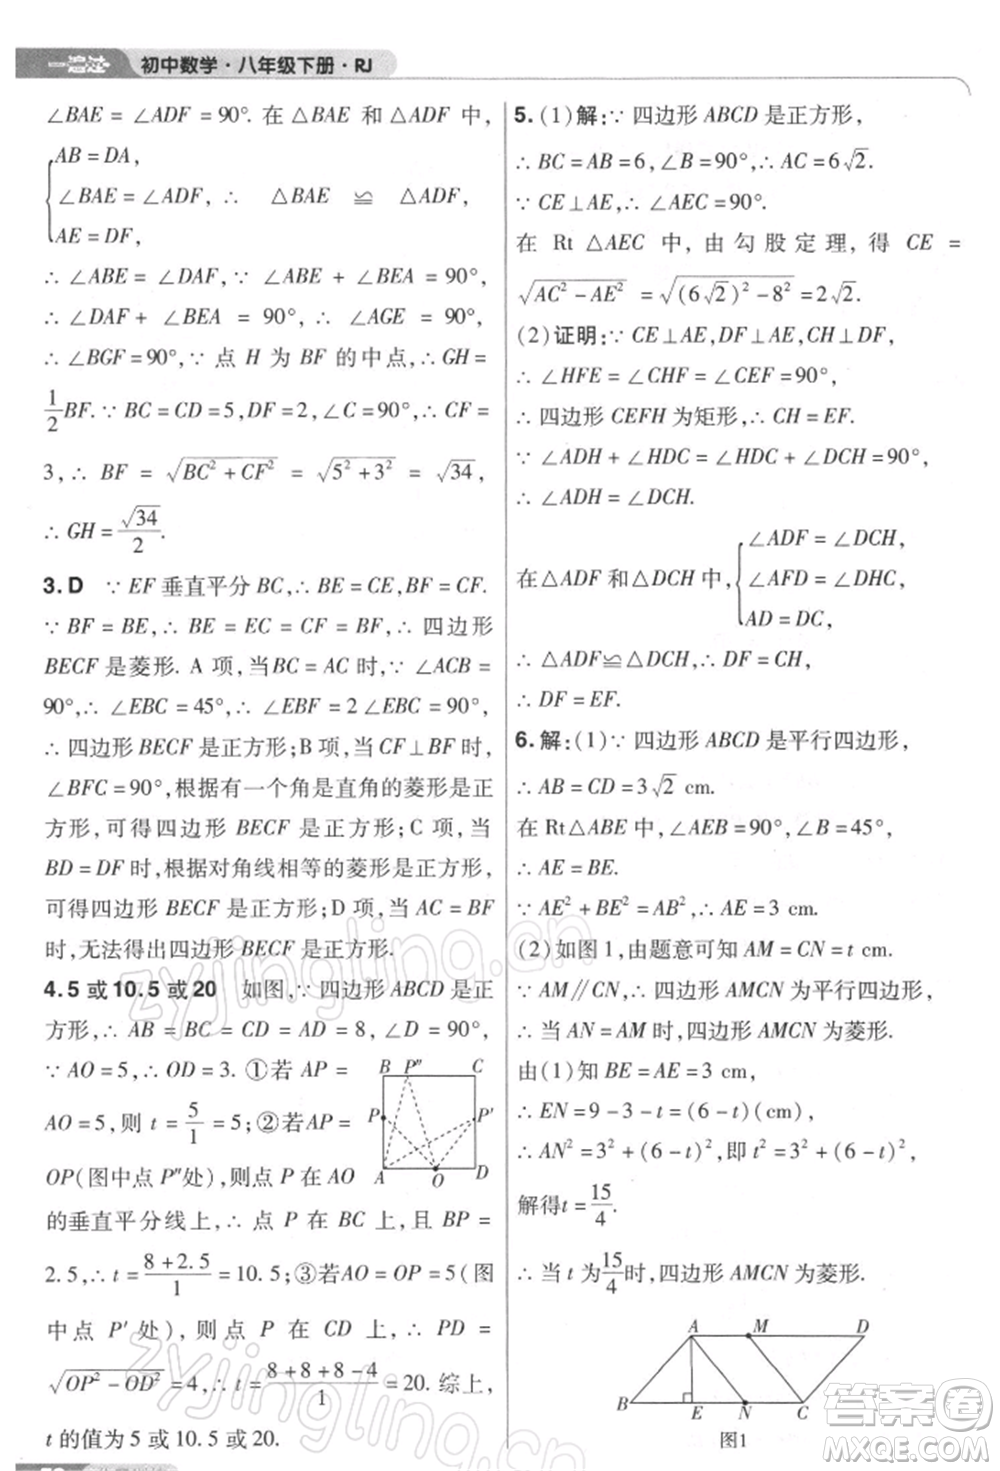 一遍过 初中数学·八年级下册·RJ
∠BAE = ∠ADF = 90°. 在 △BAE 和 △ADF 中,
{AB = DA,
∠BAE = ∠ADF, ∴ △BAE ≌ △ADF,
AE = DF,
∴ ∠ABE = ∠DAF, ∵ ∠ABE + ∠BEA = 90°,
∴ ∠DAF + ∠BEA = 90°, ∴ ∠AGE = 90°,
∴ ∠BGF = 90°, ∵ 点 H 为 BF 的中点, ∴ GH =
1/2 BF. ∵ BC = CD = 5, DF = 2, ∠C = 90°, ∴ CF =
3, ∴ BF = √(BC² + CF²) = √(5² + 3²) = √34,
∴ GH = √34/2.
3. D ∵ EF 垂直平分 BC, ∴ BE = CE, BF = CF.
∵ BF = BE, ∴ BE = EC = CF = BF, ∴ 四边形
BECF 是菱形. A 项, 当 BC = AC 时, ∵ ∠ACB =
90°, ∴ ∠EBC = 45°, ∴ ∠EBF = 2∠EBC = 90°,
∴ 四边形 BECF 是正方形; B 项, 当 CF ⊥ BF 时,
∠BFC = 90°, 根据有一个角是直角的菱形是正
方形, 可得四边形 BECF 是正方形; C 项, 当
BD = DF 时, 根据对角线相等的菱形是正方形,
可得四边形 BECF 是正方形; D 项, 当 AC = BF
时, 无法得出四边形 BECF 是正方形.
4. 5 或 10.5 或 20 如图, ∵ 四边形 ABCD 是正
方形, ∴ AB = BC = CD = AD = 8, ∠D = 90°,
∵ AO = 5, ∴ OD = 3. ①若 AP =
AO = 5, 则 t = 5/1 = 5; ②若 AP =
OP(图中点 P″处), 则点 P 在 AO
的垂直平分线上, ∴ 点 P 在 BC 上, 且 BP =
2.5, ∴ t = (8 + 2.5)/1 = 10.5; ③若 AO = OP = 5(图
中点 P′处), 则点 P 在 CD 上, ∴ PD =
√(OP² − OD²) = 4, ∴ t = (8 + 8 + 8 − 4)/1 = 20. 综上,
t 的值为 5 或 10.5 或 20.
B P″ C
P P′
A O D
5. (1)解: ∵ 四边形 ABCD 是正方形,
∴ BC = AB = 6, ∠B = 90°, ∴ AC = 6√2.
∵ CE ⊥ AE, ∴ ∠AEC = 90°.
在 Rt △AEC 中, 由勾股定理, 得 CE =
√(AC² − AE²) = √((6√2)² − 8²) = 2√2.
(2)证明: ∵ CE ⊥ AE, DF ⊥ AE, CH ⊥ DF,
∴ ∠HFE = ∠CHF = ∠CEF = 90°,
∴ 四边形 CEFH 为矩形, ∴ CH = EF.
∵ ∠ADH + ∠HDC = ∠HDC + ∠DCH = 90°,
∴ ∠ADH = ∠DCH.
在△ADF 和△DCH 中, {∠ADF = ∠DCH,
∠AFD = ∠DHC,
AD = DC,
∴ △ADF ≌ △DCH, ∴ DF = CH,
∴ DF = EF.
6. 解: (1) ∵ 四边形 ABCD 是平行四边形,
∴ AB = CD = 3√2 cm.
在 Rt△ABE 中, ∠AEB = 90°, ∠B = 45°,
∴ AE = BE.
∵ AE² + BE² = AB², ∴ AE = 3 cm.
(2)如图 1, 由题意可知 AM = CN = t cm.
∵ AM // CN, ∴ 四边形 AMCN 为平行四边形,
∴ 当 AN = AM 时, 四边形 AMCN 为菱形.
由(1)知 BE = AE = 3 cm,
∴ EN = 9 − 3 − t = (6 − t)(cm),
∴ AN² = 3² + (6 − t)², 即 t² = 3² + (6 − t)²,
解得 t = 15/4.
∴ 当 t 为 15/4 时, 四边形 AMCN 为菱形.
A M D
B E N C
图1
zyjingling.cn
zyjingling
答案圈
MXQE.COM